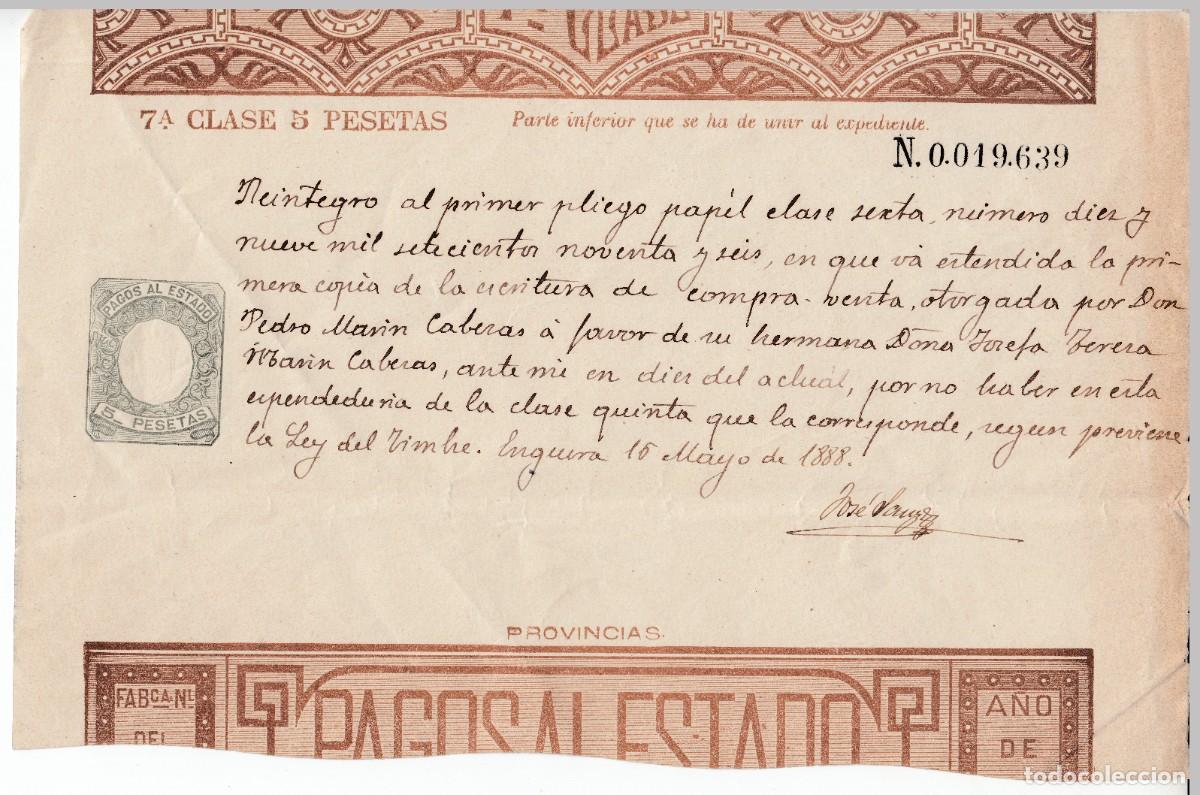 CLASE
7A CLASE 5 PESETAS
Parte inferior que se ha de unir al expediente.
N.0.019.639
Reintegro al primer pliego papél clase sexta, número diez y
nueve mil setecientos noventa y seis, en que vá estendida la pri-
mera copia de la escritura de compra-venta, otorgada por Don
Pedro Marin Caberas á favor de su hermana Doña Josefa Teresa
Marin Caberas, ante mi en diez del actuál, por no haber en esta
espendeduria de la clase quinta que la corresponde, segun previene
la Ley del Timbre. Enguera 15 Mayo de 1888.
José
PAGOS AL ESTADO
5 PESETAS
PROVINCIAS.
FABCA. NL
DEL
PAGOS AL ESTADO
AÑO
DE
todocoleccion